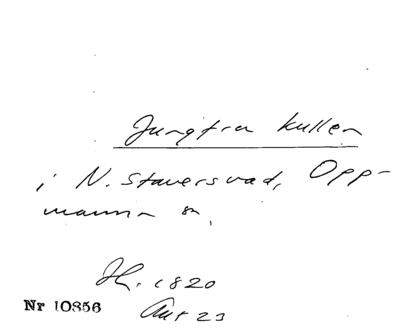 Jungfru kullen
i N. Staversvad, Opp-
manna sn,
H. 1820
Nr 10856
Ant 23